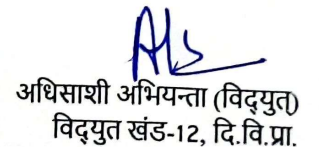 अधिसाशी अभियन्ता (विद्युत)
विद्युत खंड-12, दि.वि.प्रा.